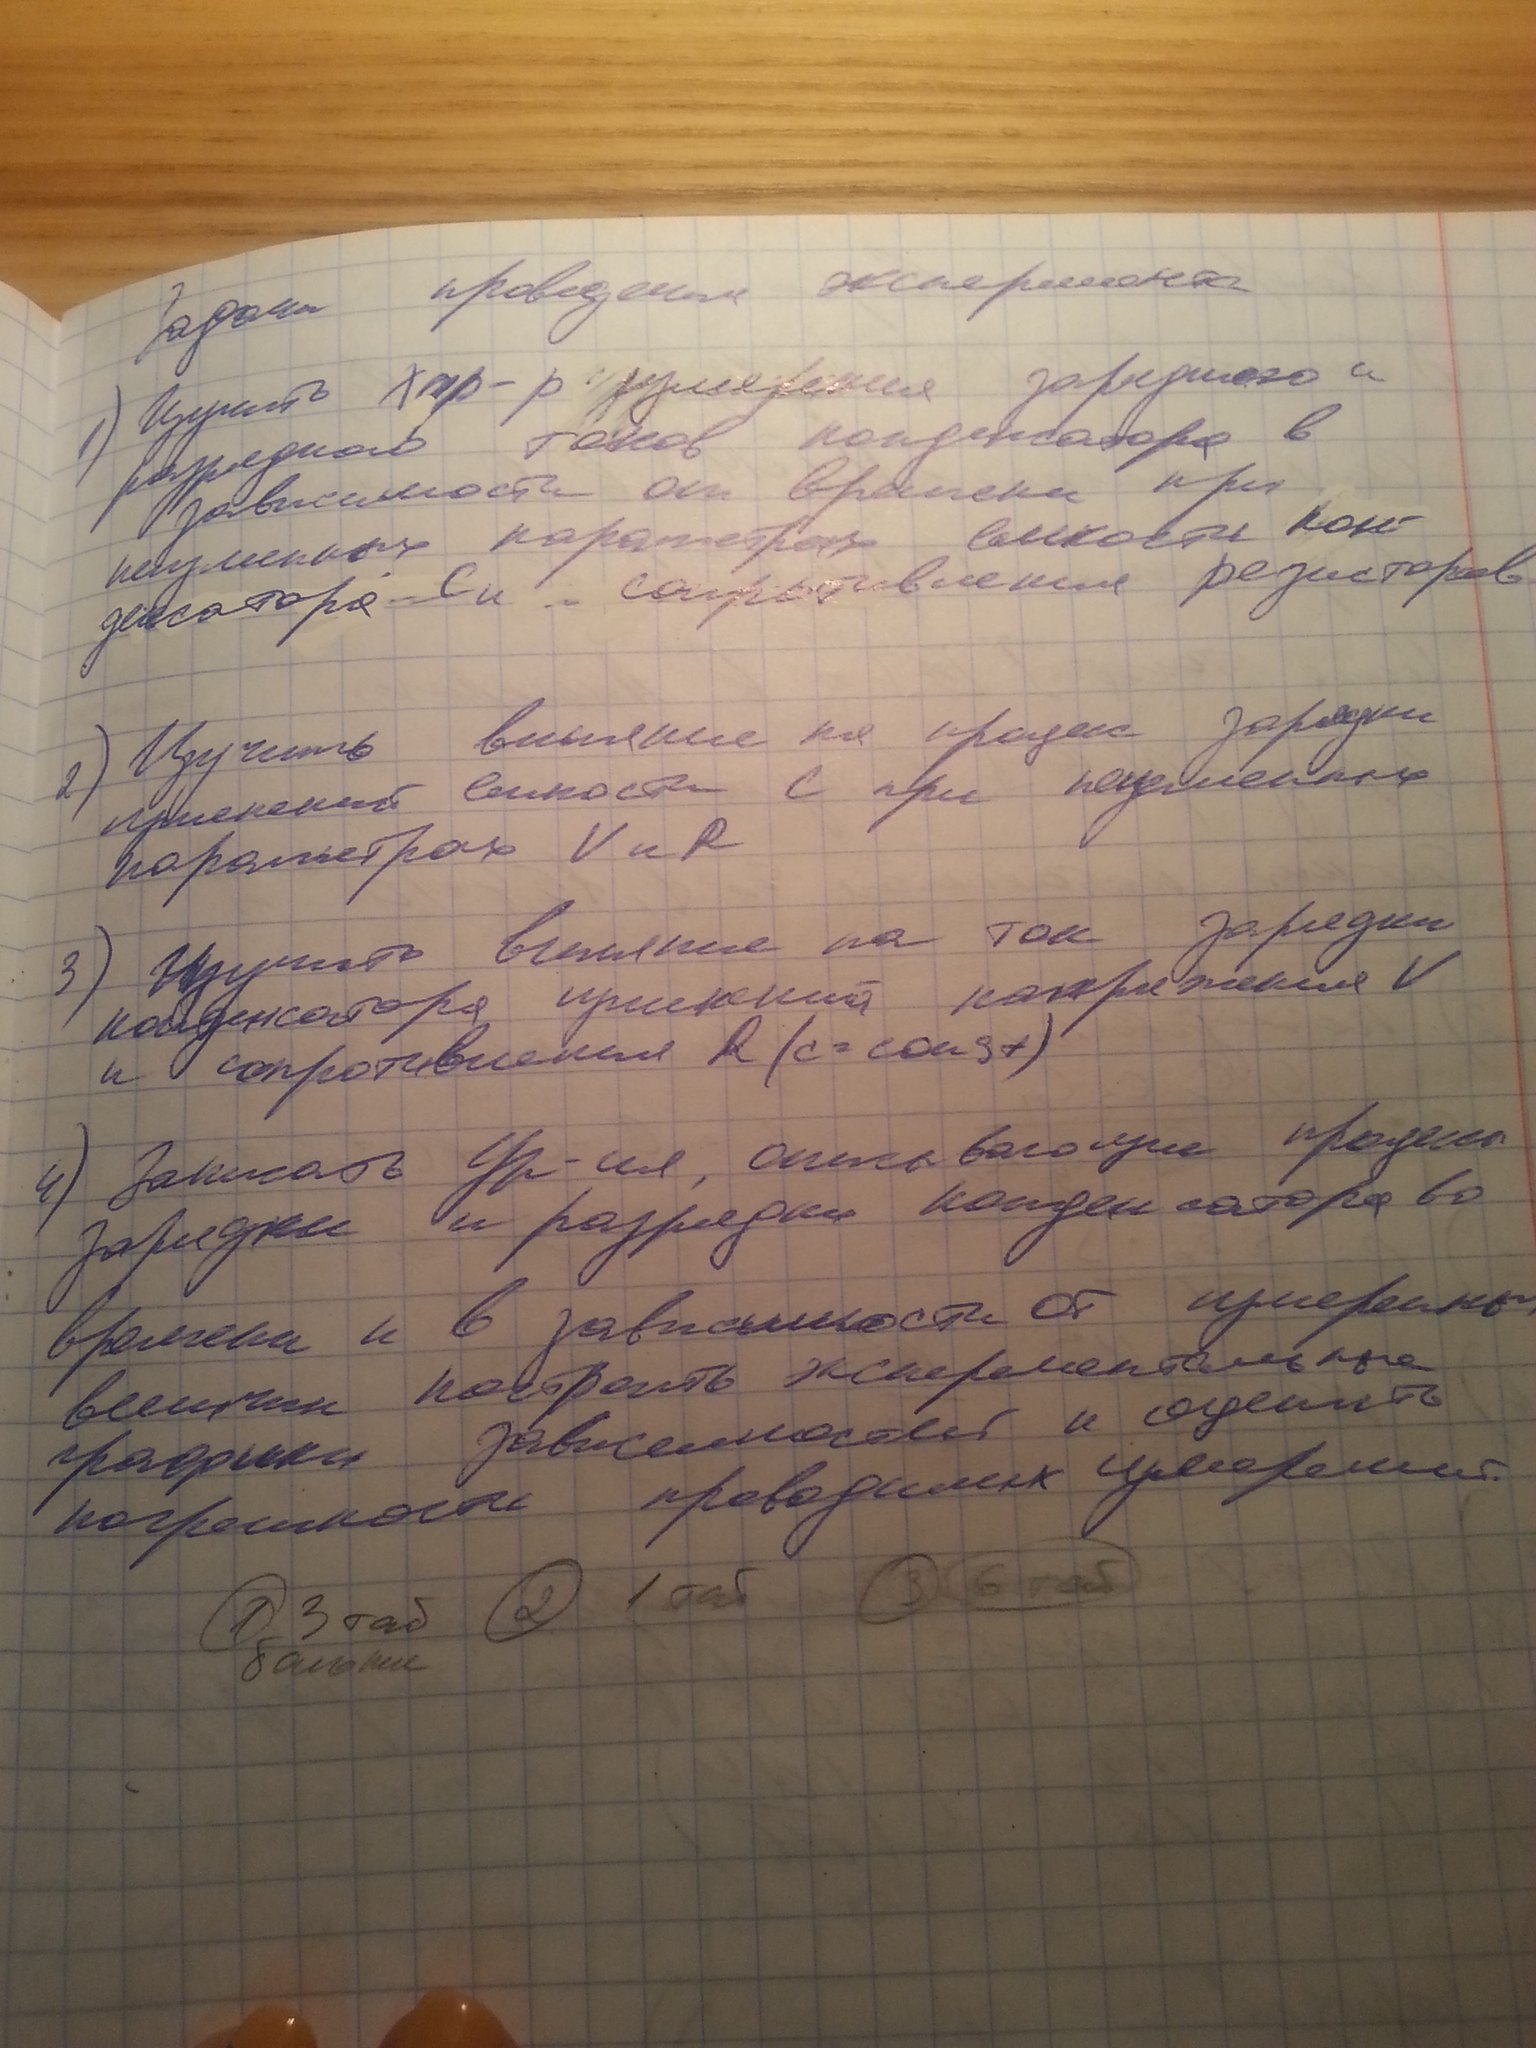 Задачи проведения эксперимента
1) Изучить хар-р измерения зарядного и
разрядного токов конденсатора в
зависимости от времени при
неизменных параметрах емкости кон-
денсатора C и сопротивления резисторов
2) Изучить влияние на процесс зарядки
изменений емкости C при неизменных
параметрах V и R
3) Изучить влияние на ток зарядки
конденсатора изменений напряжения V
и сопротивления R (c = const)
4) Записать ур-ия, описывающие процессы
зарядки и разрядки конденсатора во
времени и в зависимости от измеренных
величин построить экспериментальные
графики зависимостей и оценить
погрешности проводимых измерений.
① 3 таб ② 1 таб ③ 6 таб
больше